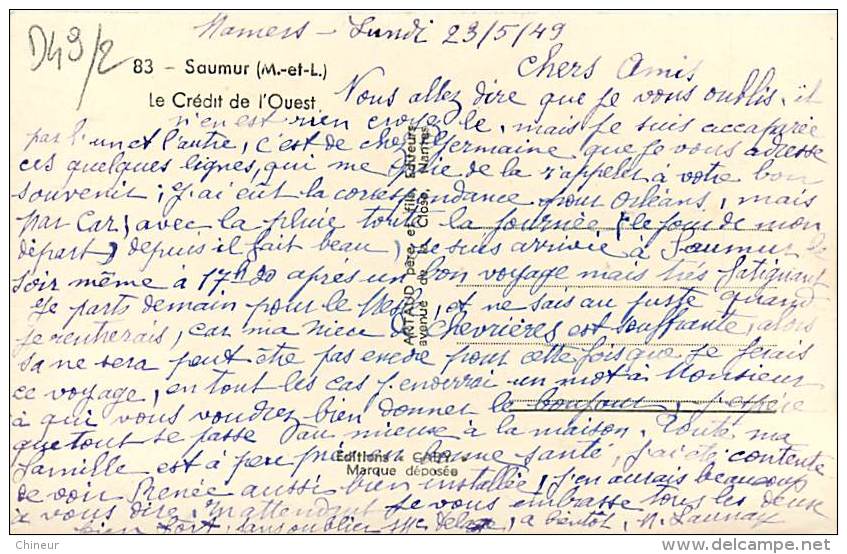 Mamers - Lundi 23/5/49
D49/2
83 - Saumur (M.-et-L.)
Chers Amis
Le Crédit de l'Ouest
Nous allez dire que je vous oublis, il
n'en est rien croyez le, mais je suis accaparée
par l'un et l'autre, c'est de chez Germaine que je vous adresse
ces quelques lignes, qui me de la r'appeler à votre bon
souvenir; j'ai eut la correspondance pour Orléans, mais
par Car, avec la pluie toute la journée (le jour de mon
départ) depuis il fait beau, je suis arrivée à Saumur le
soir même à 17h20 après un bon voyage mais très fatiguant
Je parts demain pour le , et ne sais au juste quand
je rentrerais, car ma nièce de Chevrières est souffrante, alors
sa ne sera peut être pas encore pour cette fois que je ferais
ce voyage, en tout les cas j'enverrai un mot à Monsieur
à qui vous voudrez bien donner le bonjour, j'espère
que tout se passe au mieux à la maison. Toute ma
famille est à peu près en bonne santé, j'ai été contente
de voir Renée aussi bien installée, j'en aurais beaucoup
à vous dire, en attendant je vous embrasse tous les deux
bien fort, sans oublier Mme , a bientôt, M. Launay
ARTAUD père et fils, Éditeurs
avenue de la Close, Nantes
Éditions « GABY »
Marque déposée
© Chineur
http://www.delcampe.net